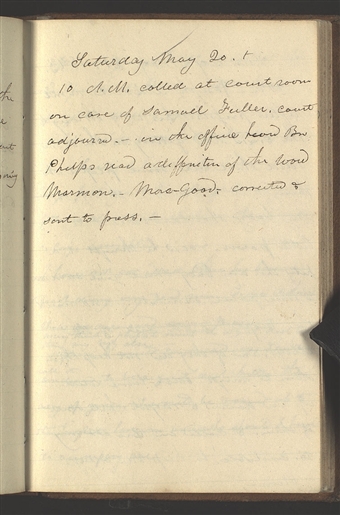 Saturday May 20. +
10 A.M. called at court room
on case of Samuel Fuller. court
adjournd. – in the office heard Bro
Phelps read a deffinition of the word
Mormon. – More-Good. corrected &
sent to press. –